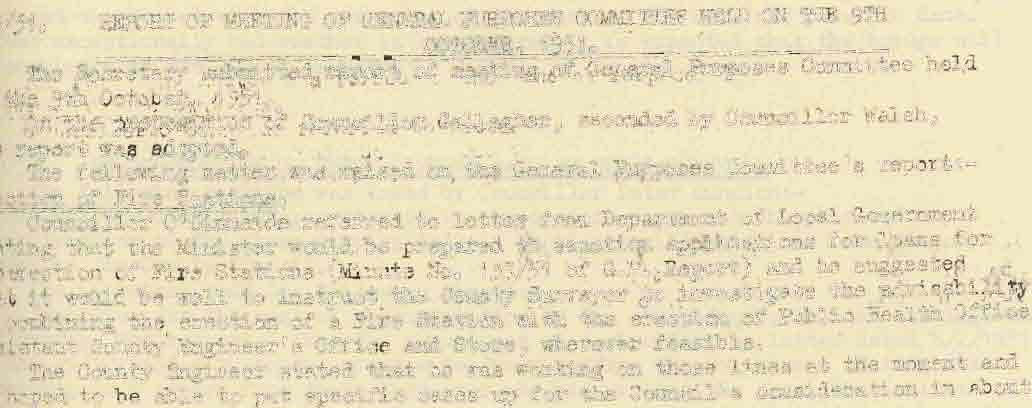 /51. REPORT OF MEETING OF GENERAL PURPOSES COMMITTEE HELD ON THE 9TH
OCTOBER, 1951.
The Secretary submitted report of meeting of General Purposes Committee held
the 9th October, 1951.
On the of Councillor Gallagher, seconded by Councillor Walsh,
report was adopted.
The following matter was raised on the General Purposes Committee's report:-
ction of Fire Stations:
Councillor referred to letter from Department of Local Government
ting that the Minister would be prepared to sanction applications for loans for
erection of Fire Stations (Minute No. /51 of G.P. Report) and he suggested
t it would be well to instruct the County Surveyor to investigate the advisability
combining the erection of a Fire Station with the erection of Public Health Office
sistant County Engineer's Office and Store, wherever feasible.
The County Engineer stated that he was working on those lines at the moment and
hoped to be able to put specific cases up for the Council's consideration in about